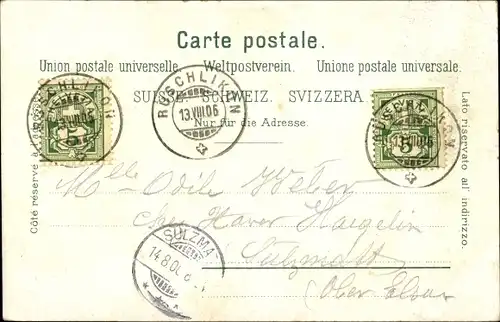 Carte postale.
Union postale universelle. Weltpostverein. Unione postale universale.
SUISSE. SCHWEIZ. SVIZZERA.
Nur für die Adresse.
Côté réservé à
Lato riservato all' indirizzo.
RÜSCHLIKON
13.VIII.06
5
RÜSCHLIKON
13.VIII.06
RÜSCHLIKON
13.VIII.06
5
Mlle Odile Weber
Xaver Haegelin
Sulzmatt
(Ober Elsass
SULZMA
14.8.06